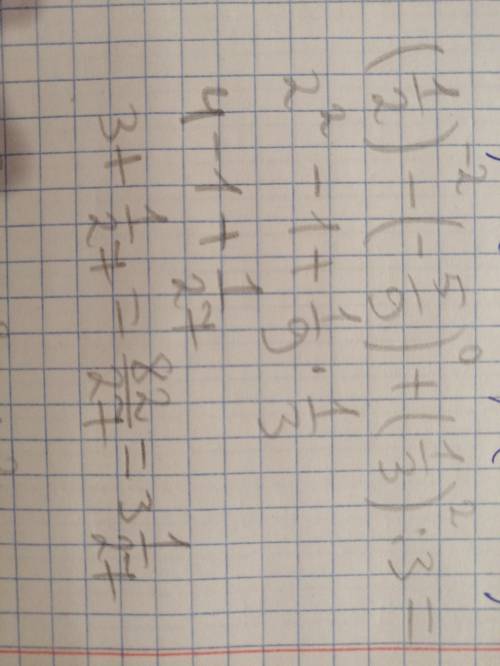 (1/2)⁻² - (-5/9)⁰ + (1/3)² : 3 =
2² - 1 + 1/9 · 1/3
4 - 1 + 1/27
3 + 1/27 = 82/27 = 3 1/27